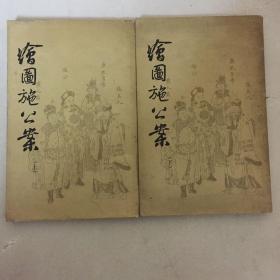 繪圖施公案
(上)
繪圖施公案
(下)